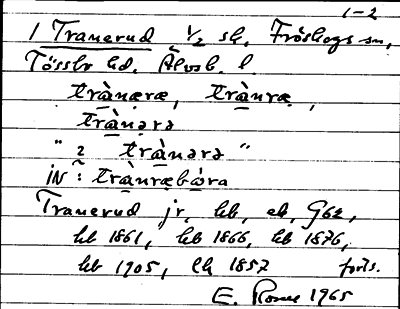 1-2
1 Tranerud 1/2 sk. Fröskogs sn,
Tössbo hd. Älvsb. l.
trànæræ, trànræ,
trànərə
" 2 trànərə "
iN: trànræbòra
Tranerud jr, kb, ek, G62,
kb 1861, kb 1866, kb 1876,
kb 1905, lk 1857 forts.
E. 1965